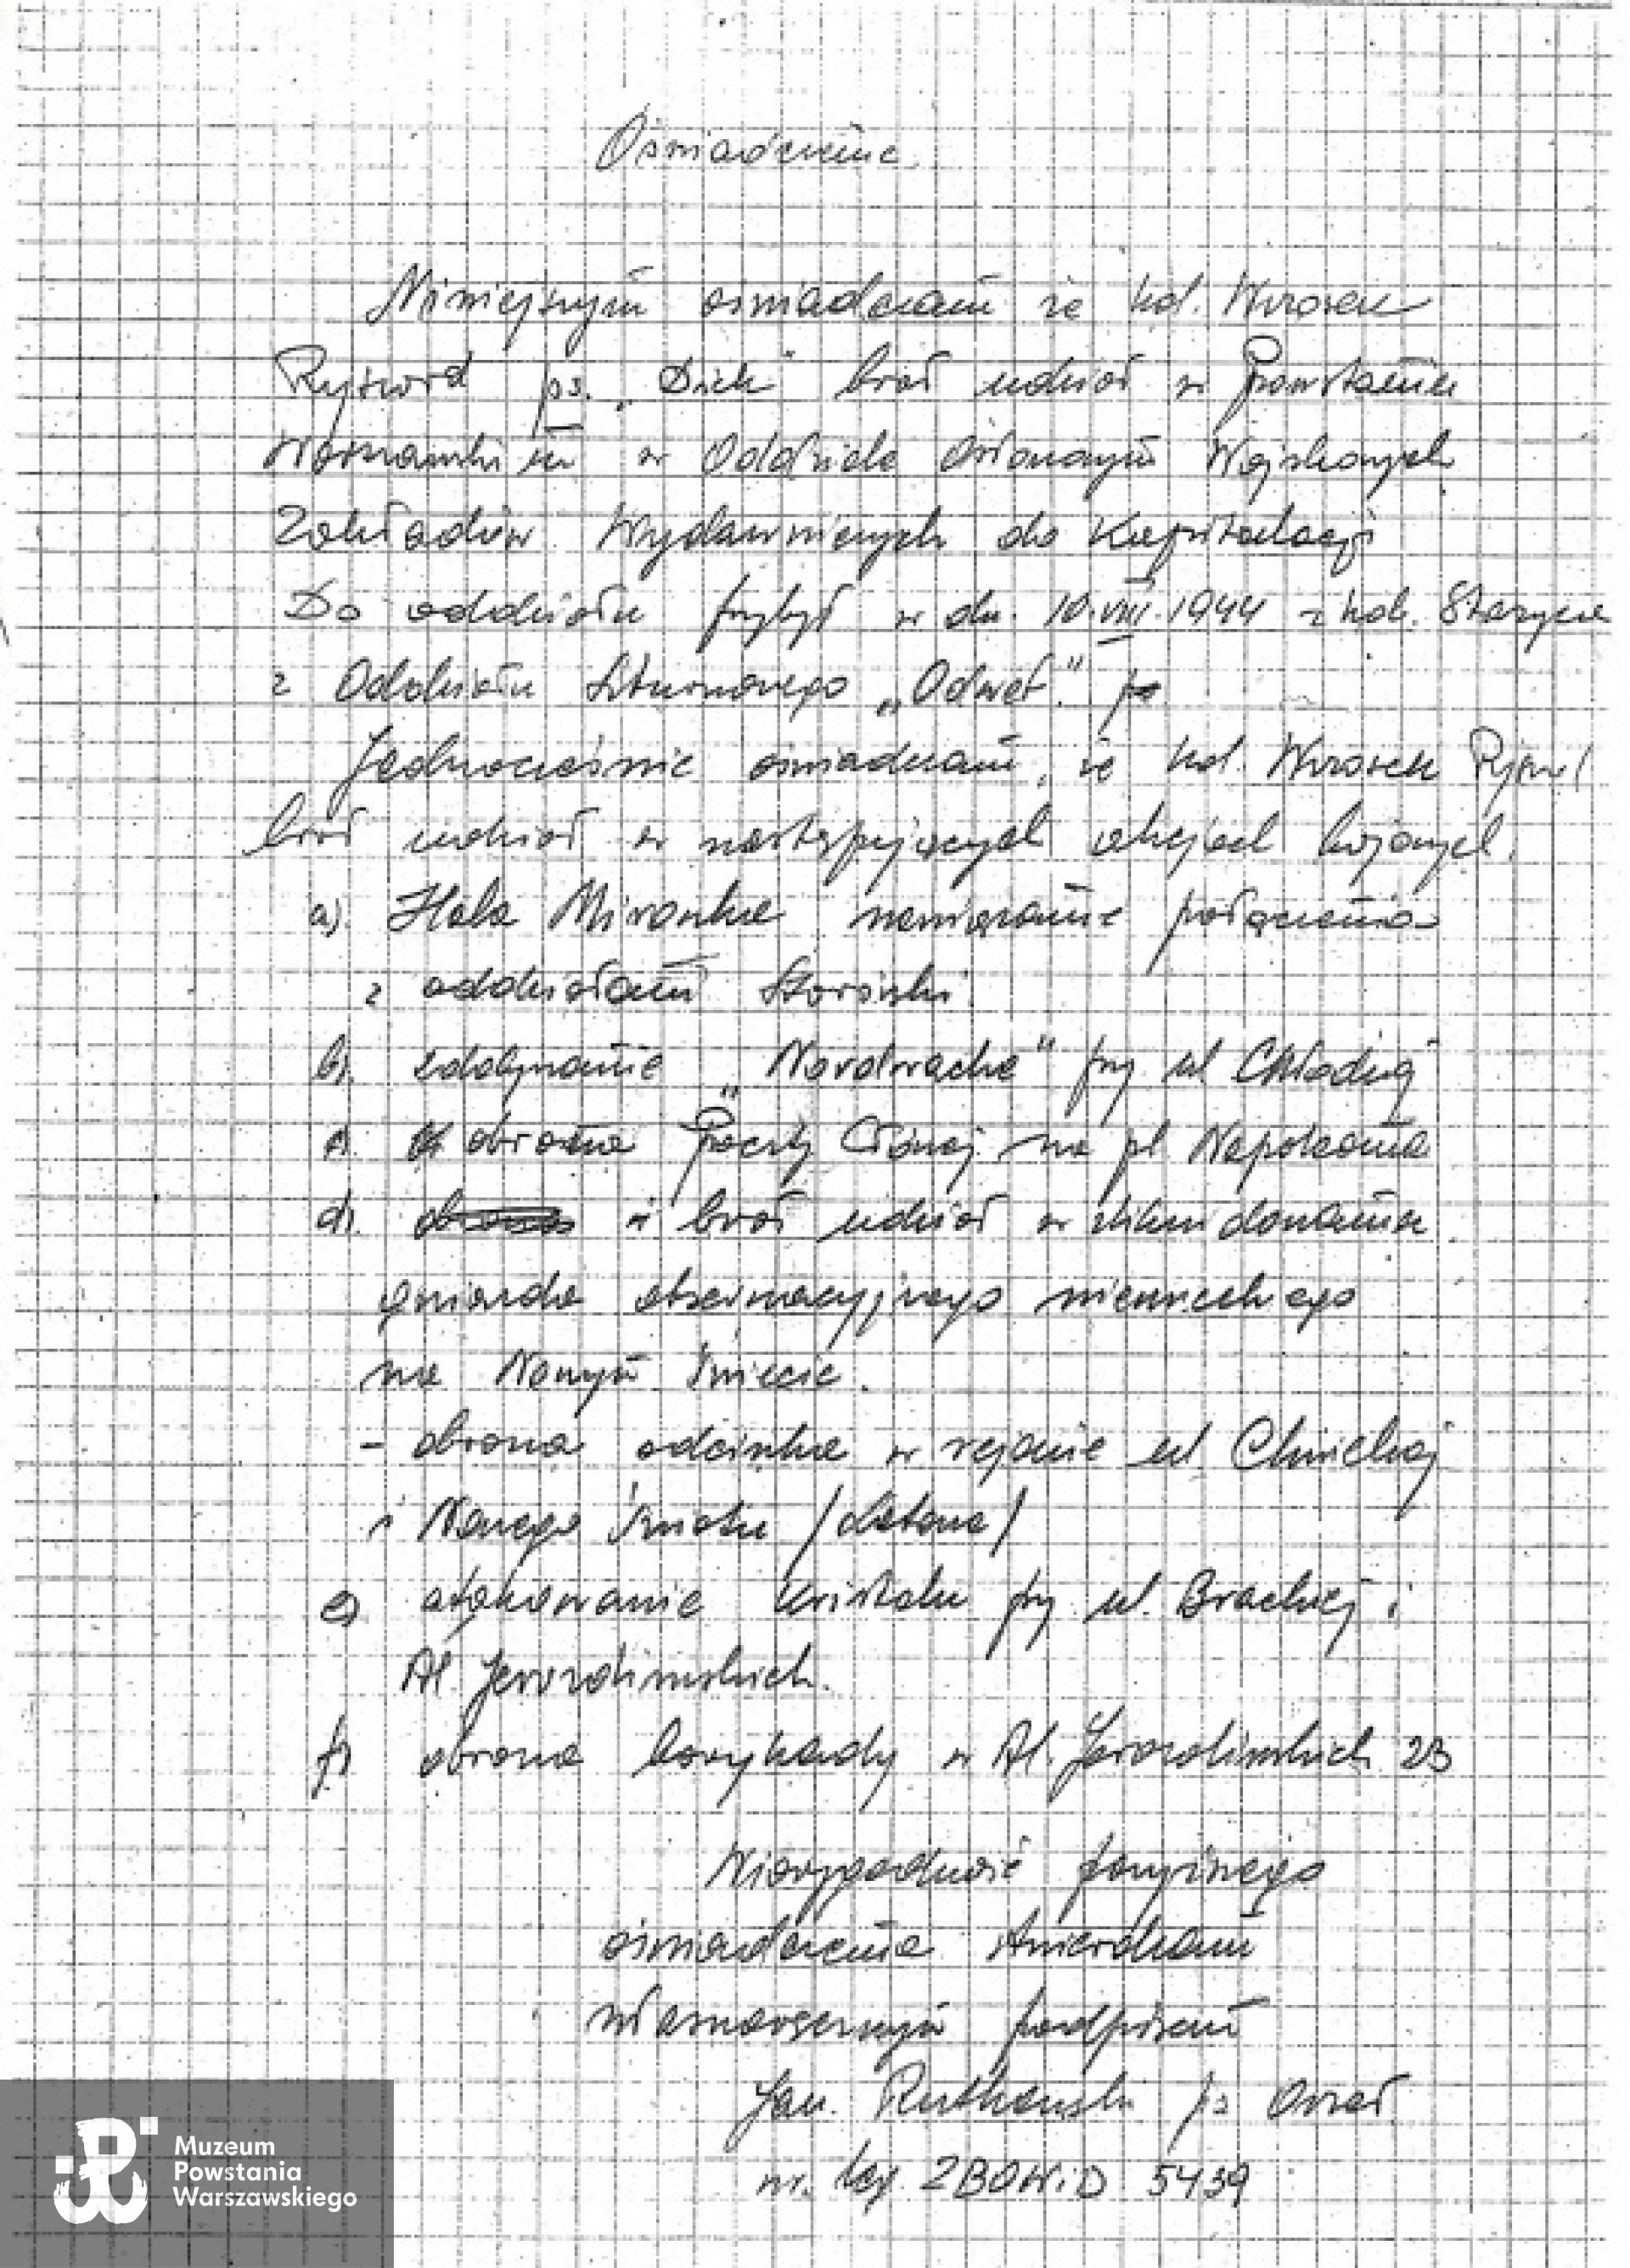 Oświadczenie
Niniejszym oświadczam że kol. Wrosek
Ryszard ps. „Dzik" brał udział w Powstaniu
Warszawskim w Oddziele Osłonowym Wojskowych
Zakładów Wydawniczych do Kapitulacji
Do oddziału przybył w dn. 10.VIII.1944 z kol.
z Oddziału Szturmowego „Odwet".
Jednocześnie oświadczam, że kol. Wrosek
brał udział w następujących akcjach bojowych.
a) Hala Mirowska nawiązanie połączenia
z oddziałami Starówki
b). zdobywanie „Nordwache" przy ul Chłodnej
c). obrona Poczty Głównej na pl Napoleona
d). i brał udział w zlikwidowaniu
gniazda obserwacyjnego niemieckiego
na Nowym Świecie.
- obrona odcinka w rejonie ul Chmielnej
i Nowego Światu
e) atakowanie przy ul. Brackiej i
Al. Jerozolimskich.
f) obrona barykady w Al. Jerozolimskich 23
Wiarygodność powyższego
oświadczenia stwierdzam
własnoręcznym podpisem
Jan Rutkowski ps Orzeł
nr. leg. ZBOWiD 5439
Muzeum
Powstania
Warszawskiego